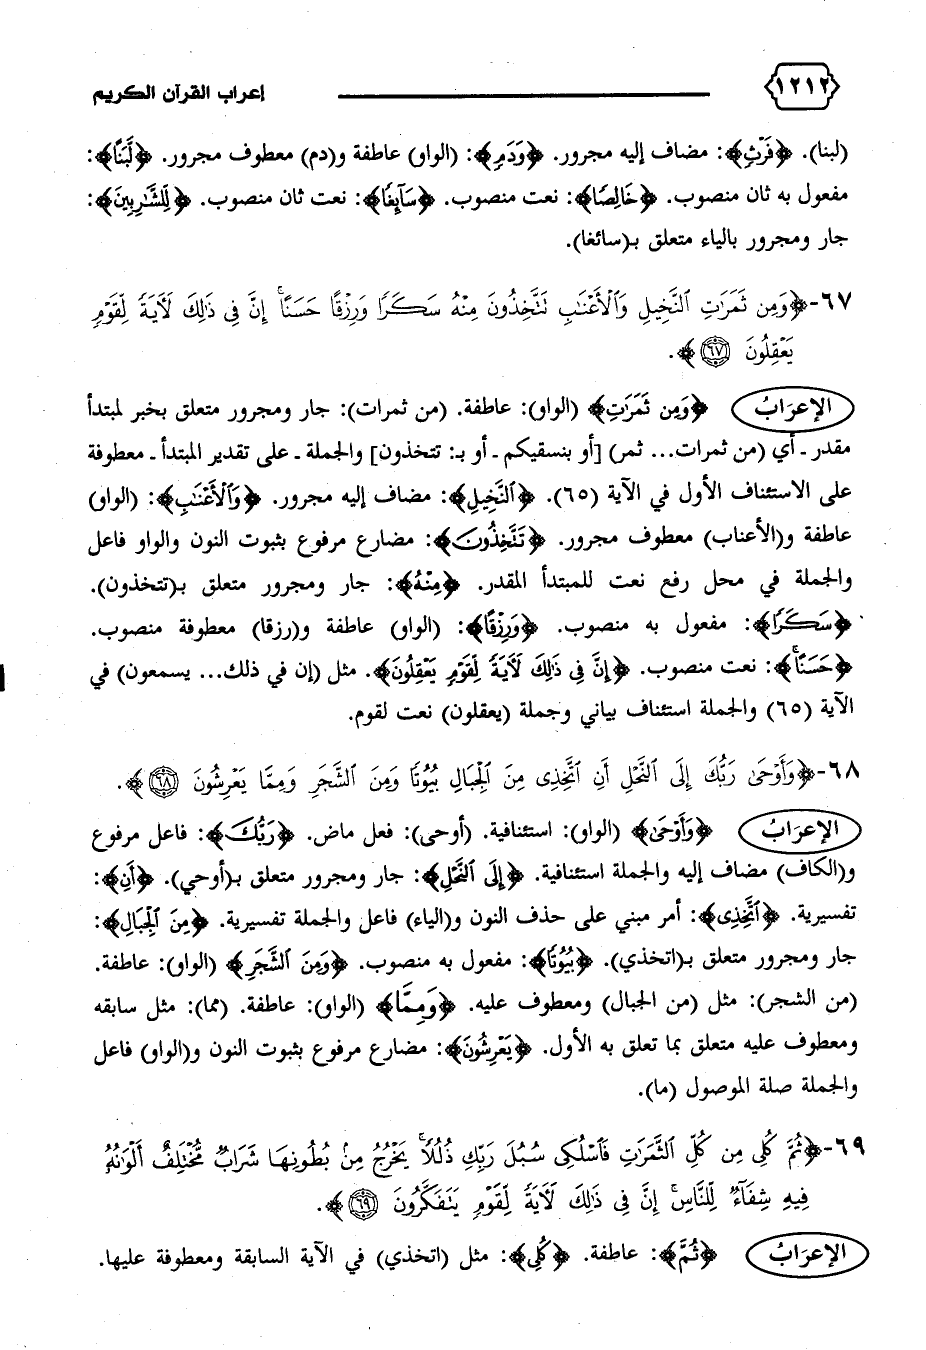 ١٢١٢ إعراب القرآن الكريم
(لبنا). ﴿فَرْثٍ﴾: مضاف إليه مجرور. ﴿وَدَمٍ﴾: (الواو) عاطفة و(دم) معطوف مجرور. ﴿لَّبَنًا﴾:
مفعول به ثان منصوب. ﴿خَالِصًا﴾: نعت منصوب. ﴿سَآئِغًا﴾: نعت ثان منصوب. ﴿لِلشَّٰرِبِينَ﴾:
جار ومجرور بالياء متعلق بـ(سائغا).
٦٧-﴿وَمِن ثَمَرَٰتِ ٱلنَّخِيلِ وَٱلْأَعْنَٰبِ تَتَّخِذُونَ مِنْهُ سَكَرًا وَرِزْقًا حَسَنًا ۗ إِنَّ فِى ذَٰلِكَ لَآيَةً لِّقَوْمٍ
يَعْقِلُونَ ٦٧﴾.
الإعرَابُ ﴿وَمِن ثَمَرَٰتِ﴾ (الواو): عاطفة. (من ثمرات): جار ومجرور متعلق بخبر لمبتدأ
مقدر ـ أي (من ثمرات... ثمر) [أو بنسقيكم ـ أو بـ: تتخذون] والجملة ـ على تقدير المبتدأ ـ معطوفة
على الاستئناف الأول في الآية (٦٥). ﴿ٱلنَّخِيلِ﴾: مضاف إليه مجرور. ﴿وَٱلْأَعْنَٰبِ﴾: (الواو)
عاطفة و(الأعناب) معطوف مجرور. ﴿تَتَّخِذُونَ﴾: مضارع مرفوع بثبوت النون والواو فاعل
والجملة في محل رفع نعت للمبتدأ المقدر. ﴿مِنْهُ﴾: جار ومجرور متعلق بـ(تتخذون).
﴿سَكَرًا﴾: مفعول به منصوب. ﴿وَرِزْقًا﴾: (الواو) عاطفة و(رزقا) معطوفة منصوب.
﴿حَسَنًا ۗ﴾: نعت منصوب. ﴿إِنَّ فِى ذَٰلِكَ لَآيَةً لِّقَوْمٍ يَعْقِلُونَ﴾. مثل (إن في ذلك... يسمعون) في
الآية (٦٥) والجملة استئناف بياني وجملة (يعقلون) نعت لقوم.
٦٨-﴿وَأَوْحَىٰ رَبُّكَ إِلَى ٱلنَّحْلِ أَنِ ٱتَّخِذِى مِنَ ٱلْجِبَالِ بُيُوتًا وَمِنَ ٱلشَّجَرِ وَمِمَّا يَعْرِشُونَ ٦٨﴾.
الإعرَابُ ﴿وَأَوْحَىٰ﴾ (الواو): استئنافية. (أوحى): فعل ماض. ﴿رَبُّكَ﴾: فاعل مرفوع
و(الكاف) مضاف إليه والجملة استئنافية. ﴿إِلَى ٱلنَّحْلِ﴾: جار ومجرور متعلق بـ(أوحي). ﴿أَنِ﴾:
تفسيرية. ﴿ٱتَّخِذِى﴾: أمر مبني على حذف النون و(الياء) فاعل والجملة تفسيرية. ﴿مِنَ ٱلْجِبَالِ﴾:
جار ومجرور متعلق بـ(اتخذي). ﴿بُيُوتًا﴾: مفعول به منصوب. ﴿وَمِنَ ٱلشَّجَرِ﴾ (الواو): عاطفة.
(من الشجر): مثل (من الجبال) ومعطوف عليه. ﴿وَمِمَّا﴾ (الواو): عاطفة. (مما): مثل سابقه
ومعطوف عليه متعلق بما تعلق به الأول. ﴿يَعْرِشُونَ﴾: مضارع مرفوع بثبوت النون و(الواو) فاعل
والجملة صلة الموصول (ما).
٦٩-﴿ثُمَّ كُلِى مِن كُلِّ ٱلثَّمَرَٰتِ فَٱسْلُكِى سُبُلَ رَبِّكِ ذُلُلًا ۚ يَخْرُجُ مِنۢ بُطُونِهَا شَرَابٌ مُّخْتَلِفٌ أَلْوَٰنُهُۥ
فِيهِ شِفَآءٌ لِّلنَّاسِ ۗ إِنَّ فِى ذَٰلِكَ لَآيَةً لِّقَوْمٍ يَتَفَكَّرُونَ ٦٩﴾.
الإعرَابُ ﴿ثُمَّ﴾: عاطفة. ﴿كُلِى﴾: مثل (اتخذي) في الآية السابقة ومعطوفة عليها.